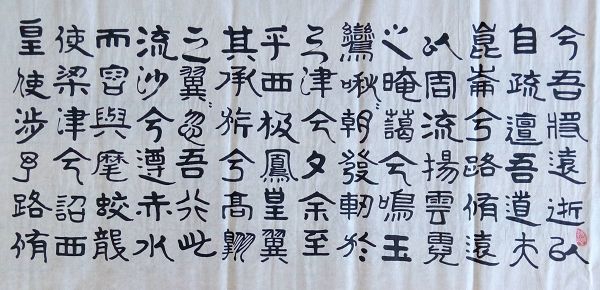 兮吾將遠逝以
自疏邅吾道夫
崑崙兮路脩遠
以周流揚雲霓
之晻藹兮鳴玉
鸞啾〃朝發軔於
天津兮夕余至
乎西極鳳皇翼
其承旂兮高翺
之翼〃忽吾行此
流沙兮遵赤水
而容與麾蛟龍
使梁津兮詔西
皇使涉予路脩